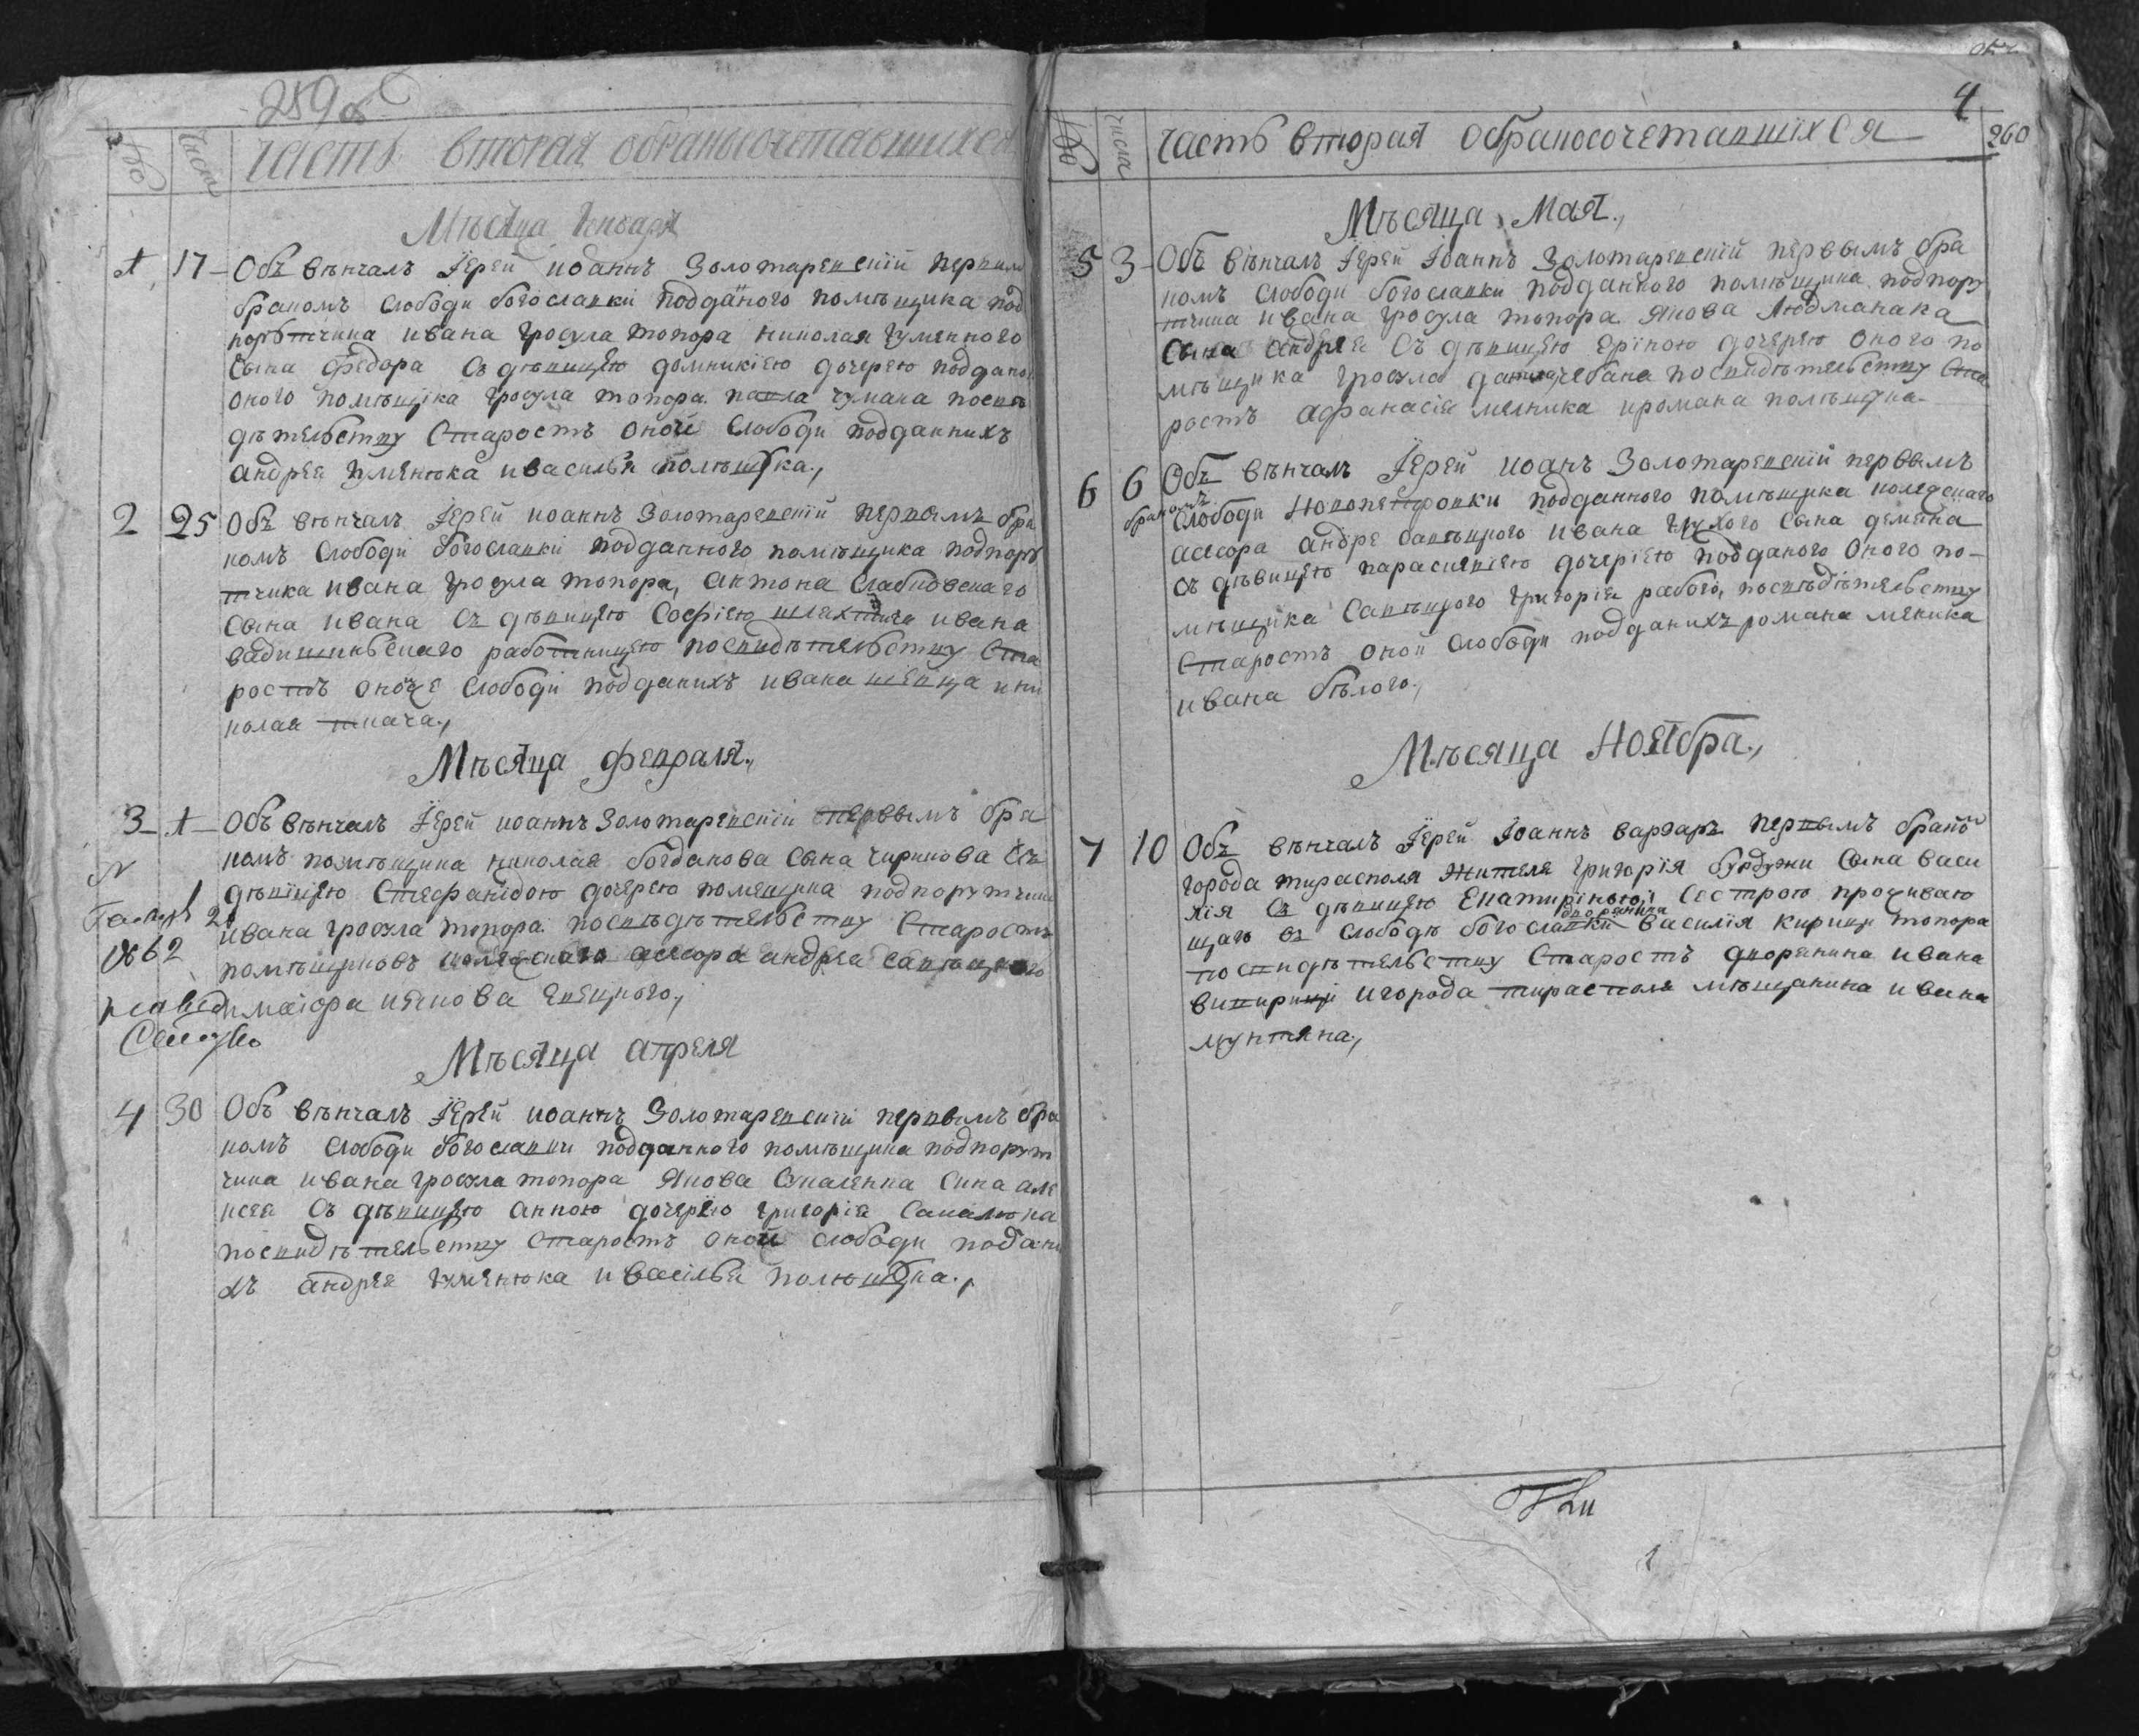 259 об
Число
часть вторая обраносочетавшихся
Мѣсяца Генваря
1 17 Объ вѣнчалъ Іерей иоаннъ Золотаревскій первим
браномъ слободи богославки подданого помѣщика под
портчика ивана гросула топора николая гуменного
Сына Федора съ дѣвицею домникіею дочерею поддано
оного помѣщика гросула топора павла чумака посви
дѣтельству Старостъ оной слободи подданнихъ
андрея гуменюка ивасилья полющука.,
2 25 Объ вѣнчалъ Іерей иоаннъ Золотаревскій первымъ бра
комъ слободи богославки подданного помѣщика подпору
тчика ивана гросула топора, антона
Сына ивана съ дѣвицею Софіею шляхтича ивана
работницею посвидѣтельству Ста
ростъ оной слободи подданихъ ивана шевца ини
колая ткача.,
Мѣсяца Февраля.,
3 1 Объ вѣнчалъ Іерей иоаннъ Золотаревскій первымъ бра
комъ помѣщика николая богданова сына чирикова съ
дѣвицею Стефанідою дочерею помещика подпорутчика
ивана гросула топора посвѣдѣтельству Старостъ
помѣщиковъ колежскаго асесора андрея
имаіора
62
Мѣсяца апреля
4 30 Объ вѣнчалъ Іерей иоаннъ Золотаревскій первымъ бра
комъ слободи богославки подданного помѣщика подпорут
чика ивана гросула топора Якова сина але
ксея съ дѣвицею анною дочерію григорія
посвидѣтельству Старостъ оной слободи подани
хъ андрея гуменюка ивасілья полющука.,
4
260
число
часть вторая обраносочетавшихся
Мѣсяца Мая.,
5 3 Объ вѣнчалъ Іерей Іоаннъ Золотаревскій первымъ бра
комъ слободи богославки подданного помѣщика подпору
тчика ивана гросула топора Якова
Сына андрея съ дѣвицею еріною дочерею оного по
мѣщика гросула чебана посвидѣтельству Ста
ростъ афанасія мелника иромана
6 6 Объ вѣнчалъ Іерей иоанъ Золотаревскій первымъ
бракомъ слободи новопетровки подданного помѣщика колежскаго
асесора андре ивана глухого сына демяна
съ дѣвицею парасиевіею дочеріею подданого оного по-
мѣщика григорія рабого, посвѣдѣтельству
Старостъ оной слободи подданихъ романа меника
ивана бѣлого.,
Мѣсяца Ноября.,
7 10 Объ вѣнчалъ Іерей Іоаннъ варзаръ первымъ брако
города тирасполя жителя григорія сына васи
лія съ дѣвицею Екатиріною Сестрою проживаю
щаго въ слободѣ богославки дворянина василія кирици топора
посвидѣтельству Старостъ дворянина ивана
игорода тирасполя мѣщанина ивана
мунтяна.,